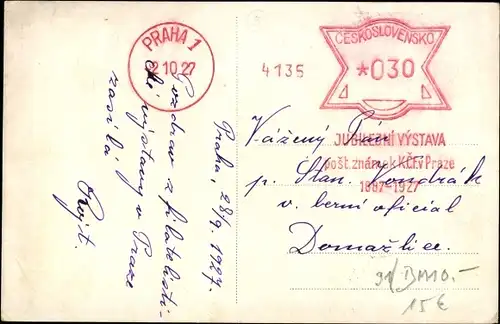 PRAHA 1
2.10.27
4135
ČESKOSLOVENSKO
*030
JUBILEJNÍ VÝSTAVA
pošt. známek K.Č.F. v Praze
1887-1927
Praha, 28/9 1927.
Pozdrav z filatelisti-
cké výstavy v Praze
zasílá
Vážený Pán
p. Stan. Vondrák
v. berní oficial
Domažlice.
91/BM10.-
15 €